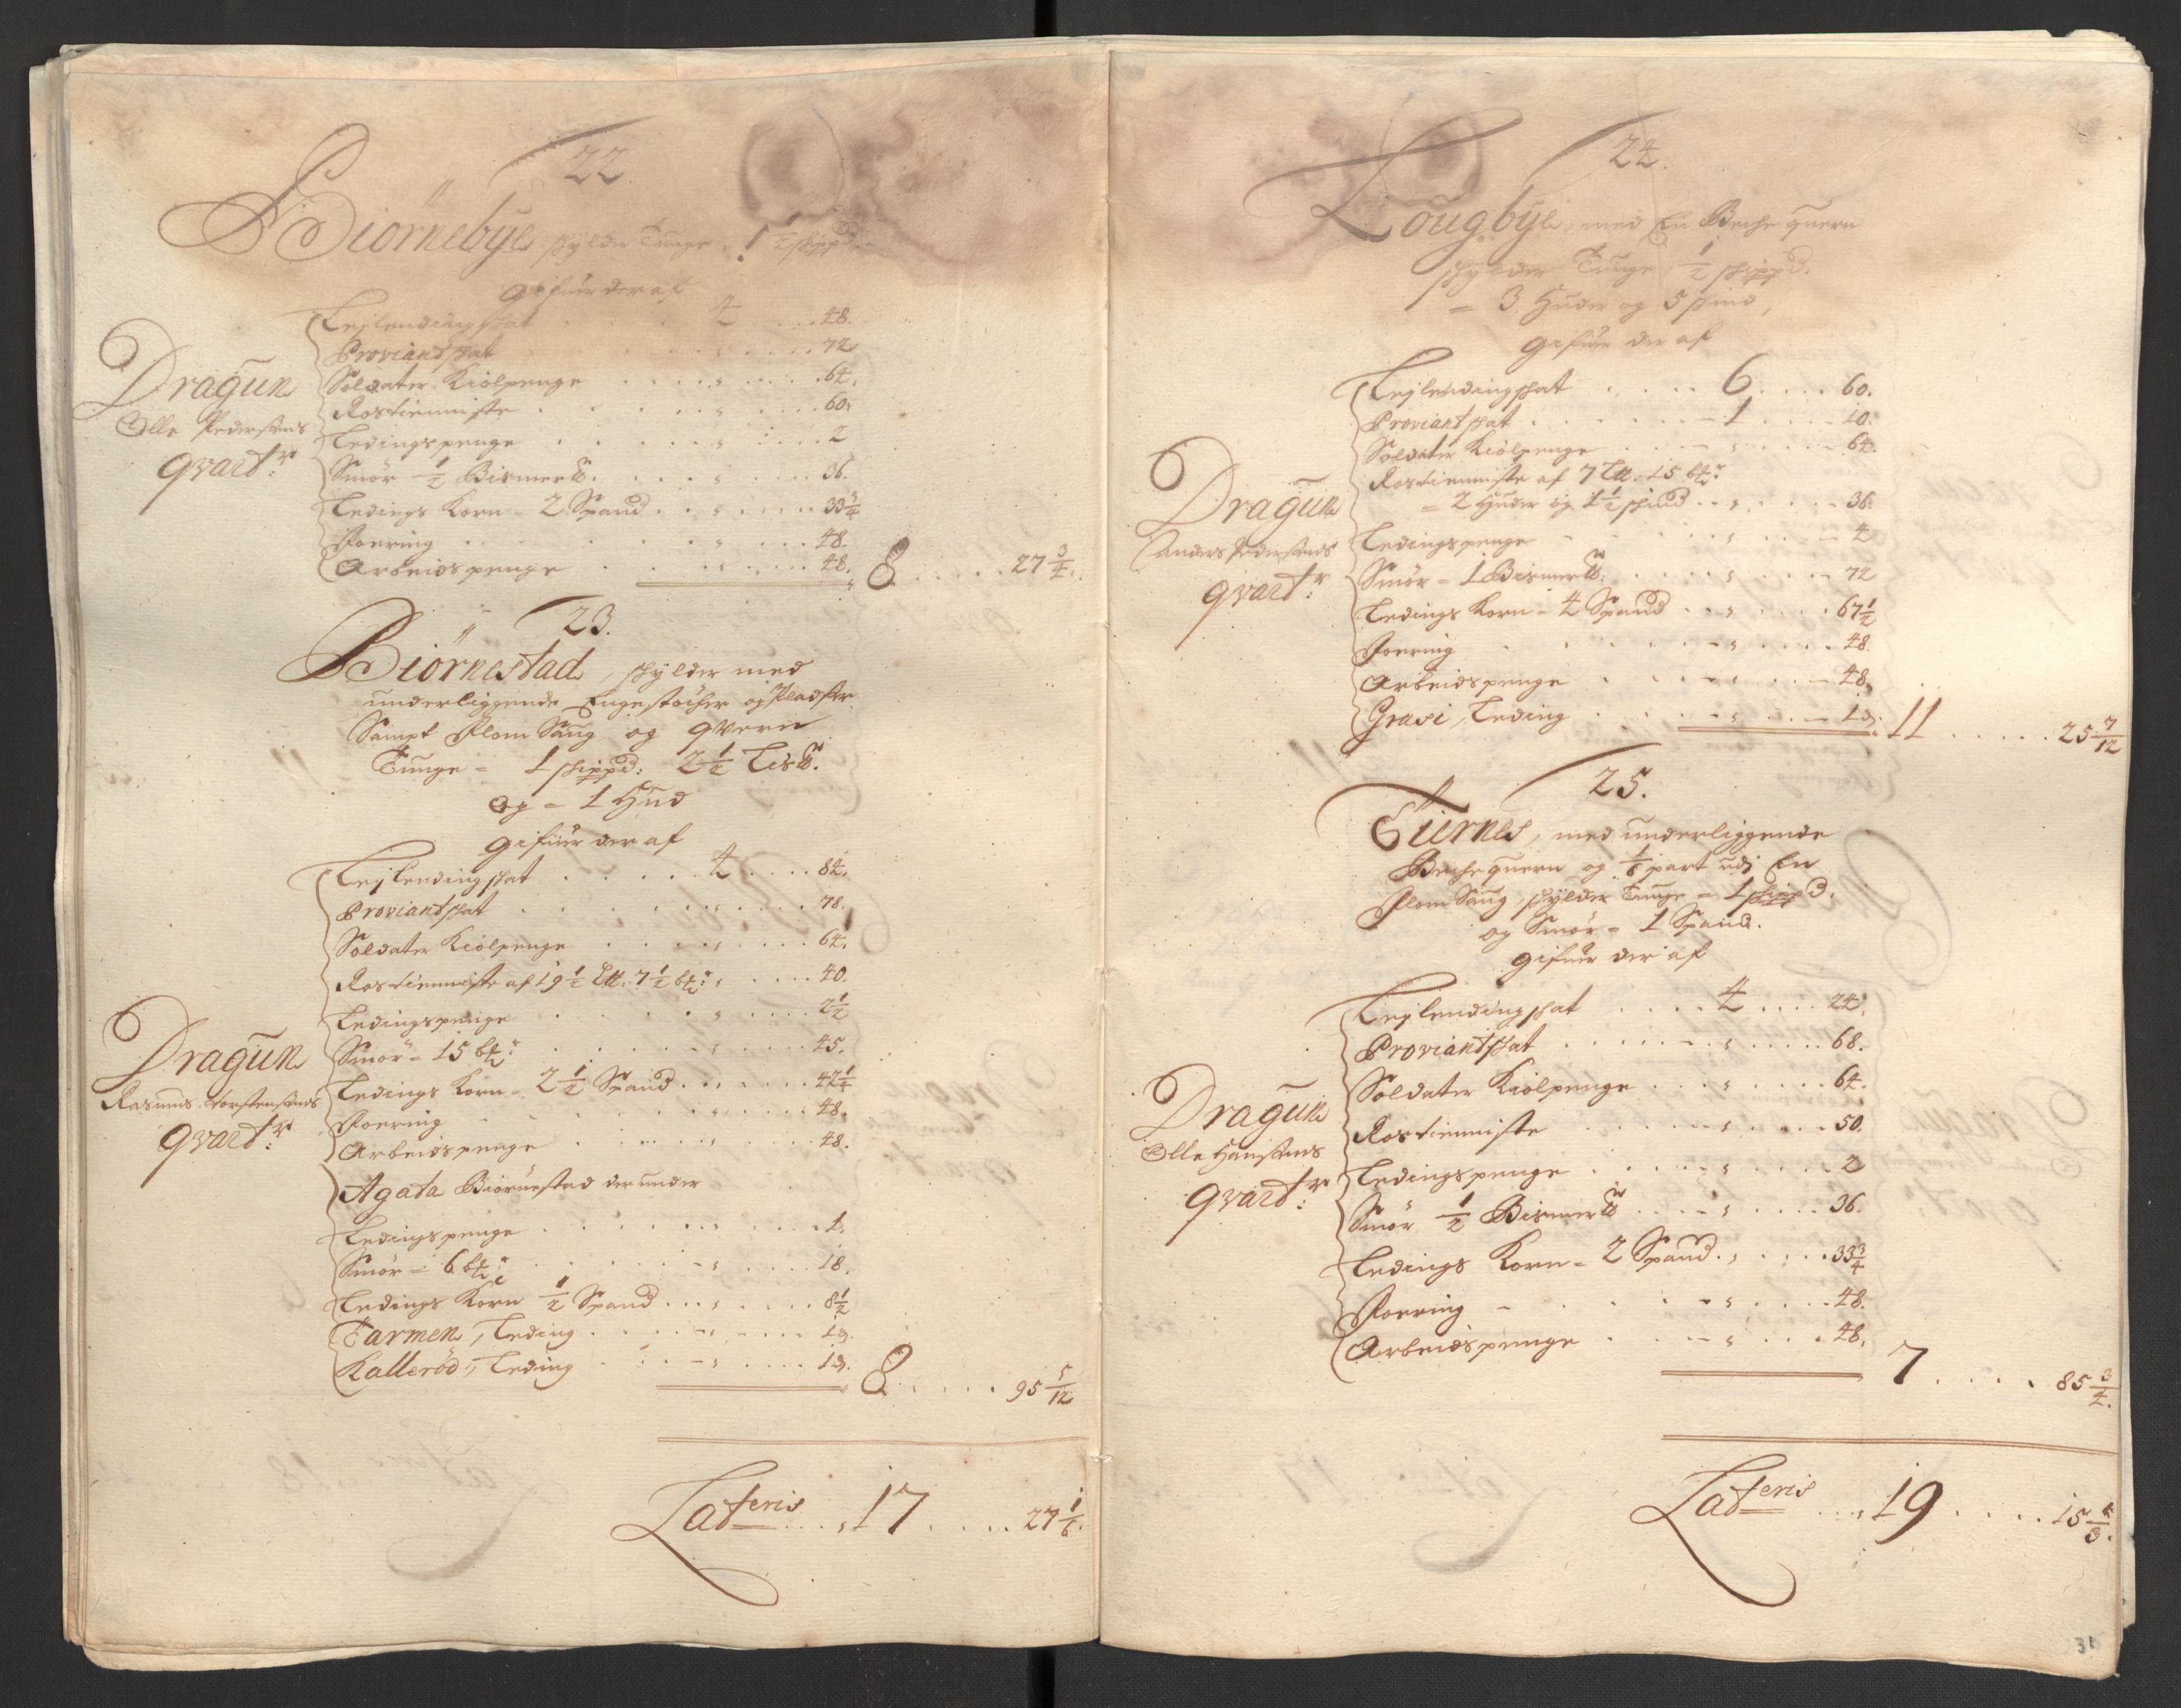 22.
Biörnebÿe skÿlder Tunge = 1½ skippd:
gifuer der af
Leylending skat . . . . 4 . . . 48.
Proviant skat . . . . „ . . . 72
Soldater Kiolpenge . . . . „ . . . 64.
Rostienniste . . . . „ . . . 60.
Ledingspenge . . . . „ . . . 2
Smör ½ Bismer ℔. . . . „ . . . 36.
Ledings Korn = 2 Spand . . „ . . . 33¾
Foering . . . . „ . . . 48.
Arbeidspenge . . . . „ . . . 48. 8 . . . . 27¾.
Dragun
Olle Pedersens
qvartr:
23.
Biörnestad, skÿlder med
underliggende Engestöcher og Pladser
Sampt Flom Saug og qvern
Tunge = 1 skippd: 2½ Lis℔.
og = 1 Hud
gifuer der af
Leylending skat . . . . 4 . . . 84.
Proviant skat . . . . „ . . . 78.
Soldater Kiolpenge . . . . „ . . . 64.
Rostienniste af 19½ Lß. 7½ bß: „ . . . 40.
Ledingspenge . . . . „ . . . 2½
Smör = 15 bß: . . . . „ . . . 45.
Ledings Korn = 2½ Spand . . „ . . . 42¼
Foering . . . . „ . . . 48.
Arbeidspenge . . . . „ . . . 48.
Dragun
Rasmus Torstensens
qvartr:
Agata Biörnestad der under
Ledingspenge . . . . „ . . . 1.
Smör = 6 bß: . . . . „ . . . 18.
Ledings Korn ½ Spand . . . „ . . . 8½
Tarmen, Leding . . . . „ . . . 19.
Kalleröd, Leding . . . . „ . . . 19. 8 . . . . 95 5/12
Lateris . . . 17 . . . . 27 1/6.
24.
Lougbÿe, med En Beche quern
skÿlder Tunge ½ skippd.
= 3 Huder og 5 skind,
gifuer der af
Leylending skat . . . . 6 . . . 60.
Proviant skat . . . . 1 . . . 10.
Soldater Kiolpenge . . . . „ . . . 64.
Rostienniste af 7 Lß. 15 bß:
= 2 Huder og 1½ skind . . „ . . . 36.
Ledingspenge . . . . „ . . . 4
Smör = 1 Bismer ℔: . . . „ . . . 72
Ledings Korn = 4 Spand . . „ . . . 67½
Foering . . . . „ . . . 48.
Arbeidspenge . . . . „ . . . 48.
Grasi, Leding . . . . „ . . . 19. 11 . . . . 25 7/12
Dragun
Anders Pedersens
qvartr:
25.
Tiernes, med underliggende
Beche quern og 1/8 part udj En
Flom Saug, skÿlder Tunge = 1 skippd:
og Smör = 1 Spand.
gifuer der af
Leylending skat . . . . 4 . . . 24.
Proviant skat . . . . „ . . . 68.
Soldater Kiolpenge . . . „ . . . 64.
Rostienniste . . . . „ . . . 50.
Ledingspenge . . . . „ . . . 2
Smör ½ Bismer ℔ . . . „ . . . 36.
Ledings Korn = 2 Spand . „ . . . 33¾
Foering . . . . „ . . . 48.
Arbeidspenge . . . . „ . . . 48. 7 . . . . 85¾.
Dragun
Olle Hansens
qvartr:
Lateris . . . 19 . . . . 15 1/3.
31